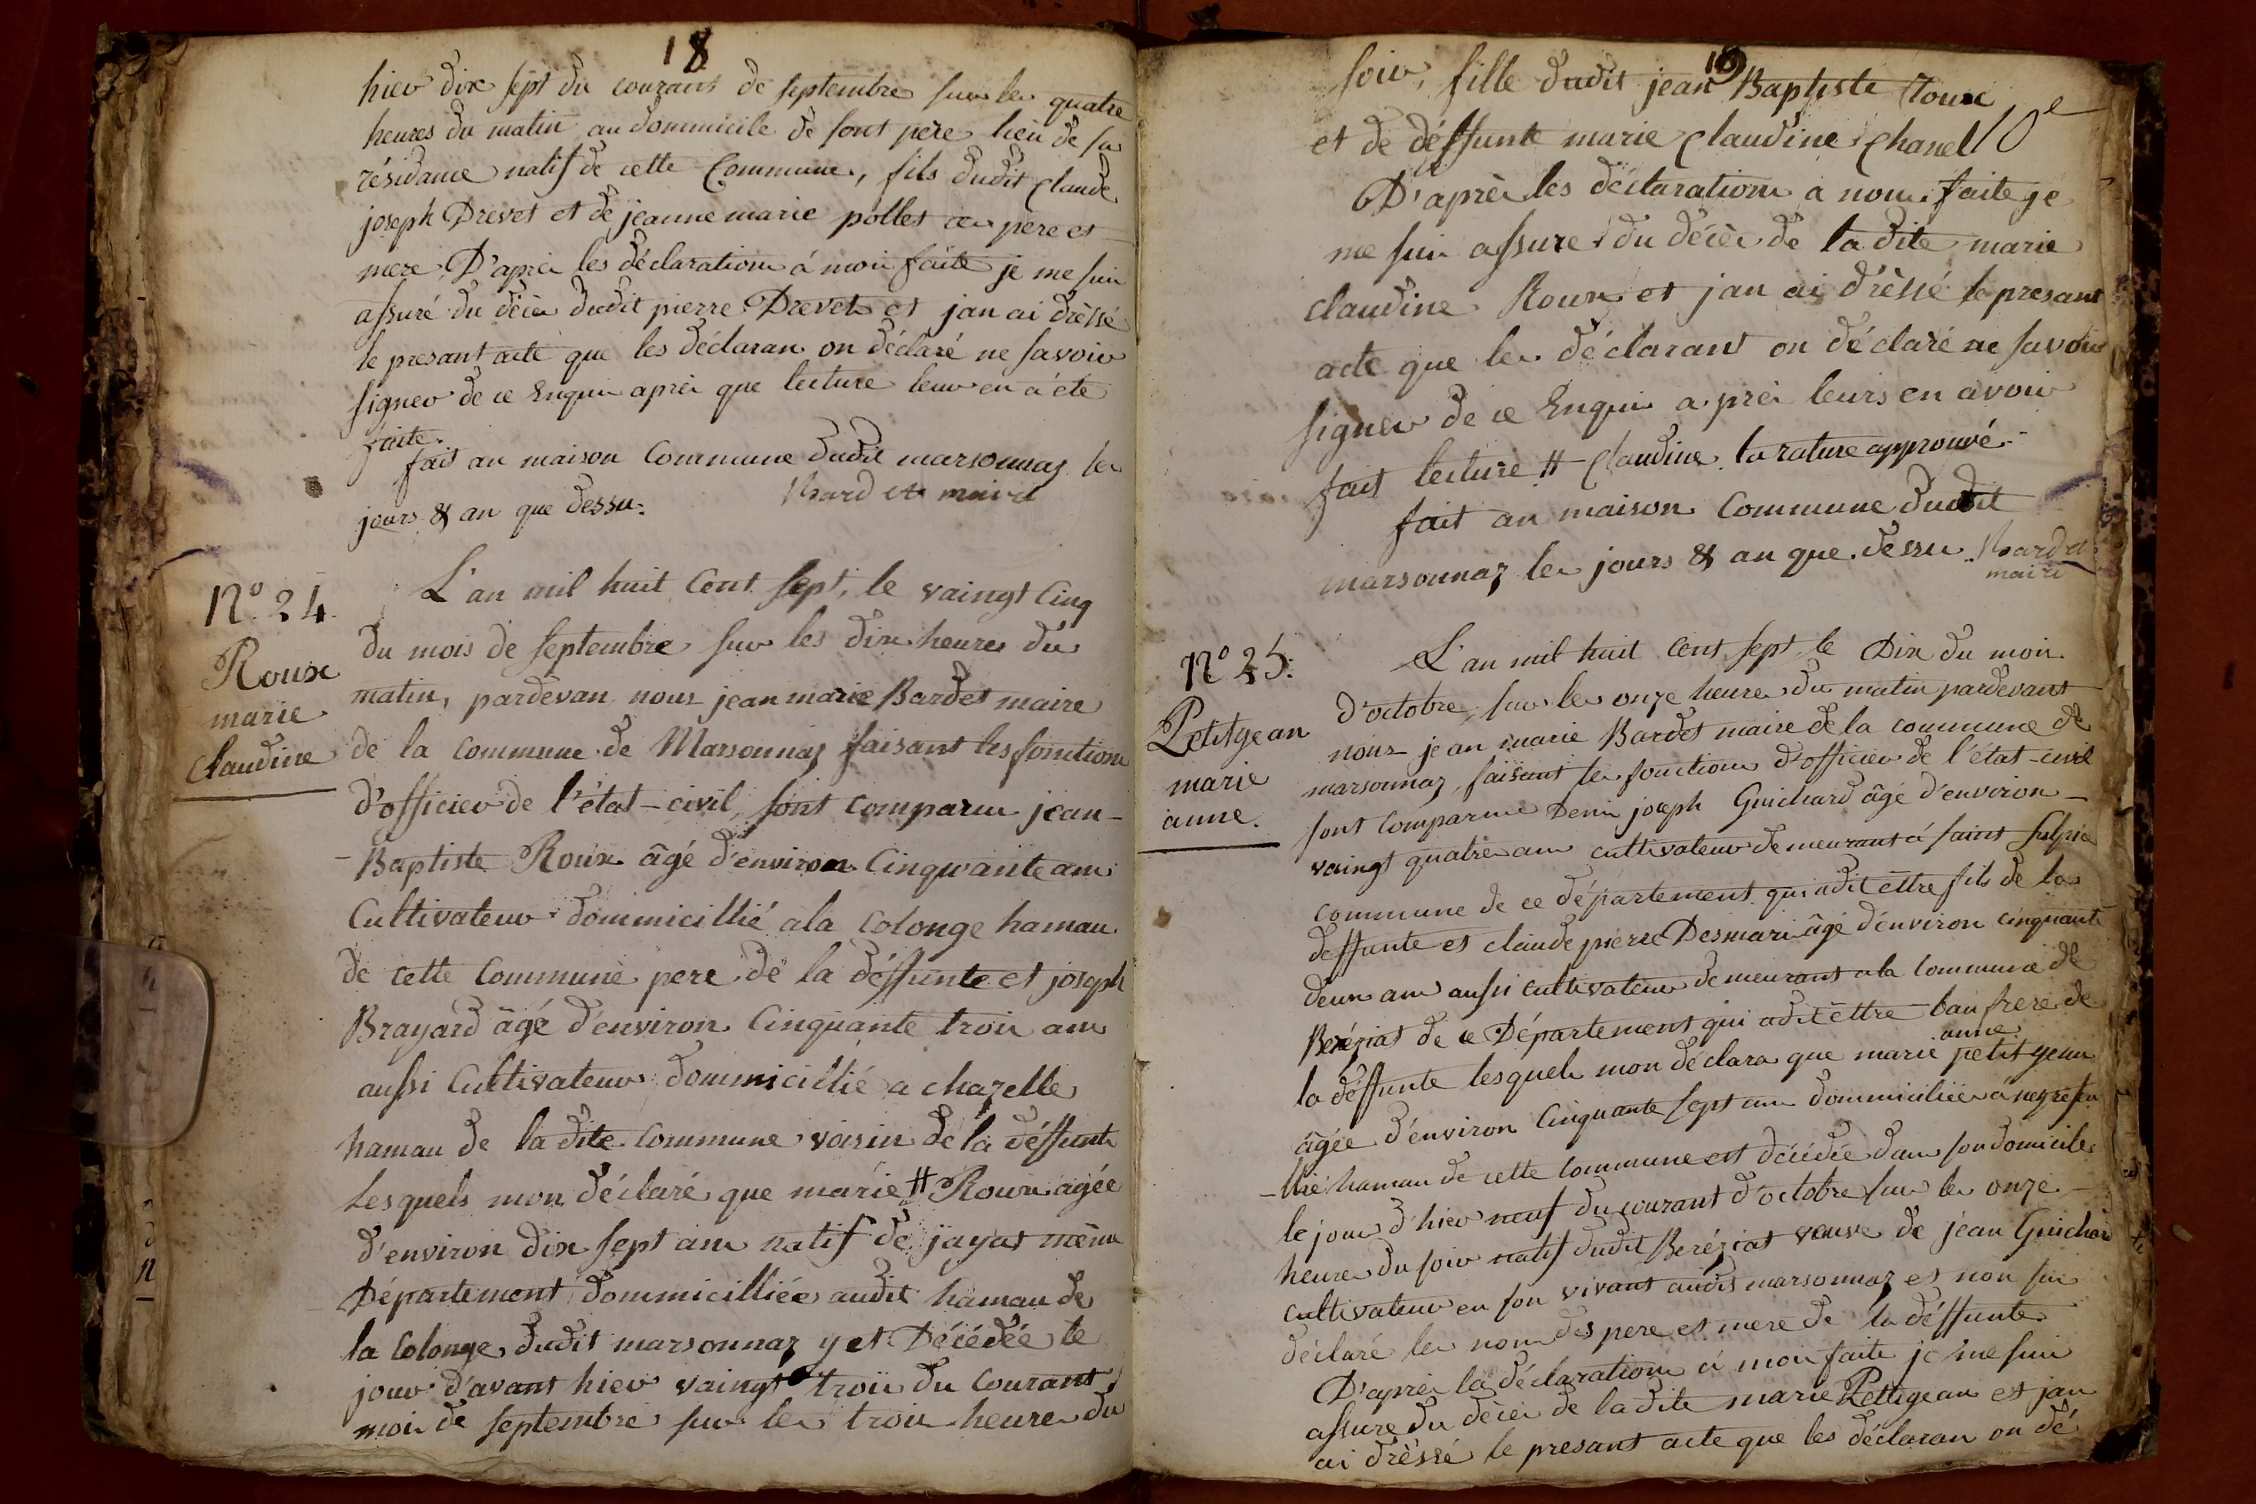 18
hier dix sept du courant de septembre sur les quatre
heures du matin au dommicile de sont père lieu de sa
résidance natif de cette Commune, fils dudit Claude
joseph Drevet et de jeanne marie pollet ces père et
mere. D'après les déclarations à moi faite je me suis
assuré du décès dudit pierre Drevet et jan ai drèssé
le presant acte que les déclarans on déclaré ne savoir
signer de ce Enquis après que lecture leur en a été
faite.
fait an maison Commune dudit marsonnaz les
jours & an que dessus. Bardet maire
N.° 24
Roux
marie
Claudine
L'an mil huit Cent sept, le vaingt Cinq
du mois de septembre sur les dix heures du
matin, pardevan nous jean marie Bardet maire
de la Commune de Marsonnaz faisant les fonctions
d'officier de l'état-civil, sont comparus jean-
-Baptiste Roux âgé d'environ Cinquante ans
Cultivateur dommicillié a la Colonge hamau
de cette Commune pere de la déffunte et joseph
Brayard âgé d'environ Cinquante trois ans
aussi Cultivateur dommicillié a chazelle
hamau de la dite Commune voisin de la déffunte
Lesquels mon déclaré que marie # Roux agée
d'environ dix sept ans natif de jayat même
Département dommicilliée audit hamau de
la Colonge dudit marsonnaz y et Décédée le
jour d'avant hier vaingt trois du Courant
mois de septembre sur les trois heures du
19
soir, fille dudit jean Baptiste Roux
et de déffunte marie Claudine Chanel 10e
D'après les déclarations a nous faite je
me suis assuré du décès de la dite marie
Claudine Roux et jan ai drèssé le presant
acte que les déclarant on déclaré ne savoir
signer de ce Enquis a près leurs en avoir
fait lecture # Claudine. la rature approuvé.
fait an maison Commune dudit
marsonnaz les jours & an que dessus. Bardet
maire
N.° 25.
Petitgean
marie
anne.
L'an mil huit Cent sept le Dix du mois
d'octobre, sur les onze heures du matin pardevant
nous jean marie Bardet maire de la commune de
marsonnaz, faisant les fonctions d'officier de l'état-civil
sont comparus Denis joseph Guichard âgé d'environ
vaingt quatre ans cultivateur demeurant à saint Sulpice
commune de ce département qui a dit ettre fils de la
deffunte et claude pierre Desmari âgé d'environ cinquante
deux ans aussi cultivateur demeurant a la Commune de
Beréziat de ce Département qui a dit ettre bau frere de
la déffunte lesquels mon déclara que marie anne petit gean
âgée d'environ Cinquante sept ans dommiciliée à
hamau de cette Commune est décédée dans son domicile
le jour d'hier neuf du courant d'octobre sur les onze
heures du soir natif dudit Beréziat veuve de jean Guichard
cultivateur en son vivant audit marsonnaz et non sus
déclaré les nom des pere et mere de la déffunte
D'après la déclaration à moi faite je me suis
assure du décès de la dite marie Petitgean et jan
ai drèssé le presant acte que les déclaran on dé